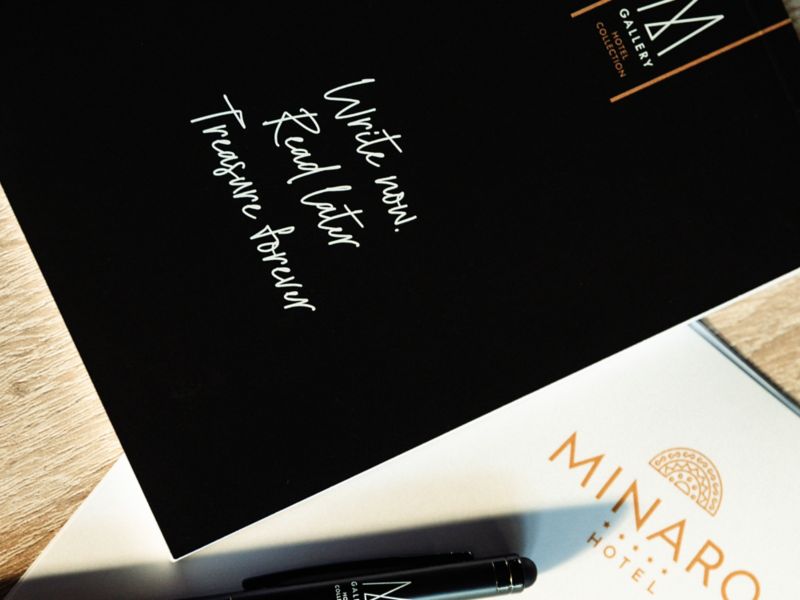 GALLERY
HOTEL
COLLECTION
Write now.
Read later
Treasure forever
MINARO
HOTEL
GALLERY